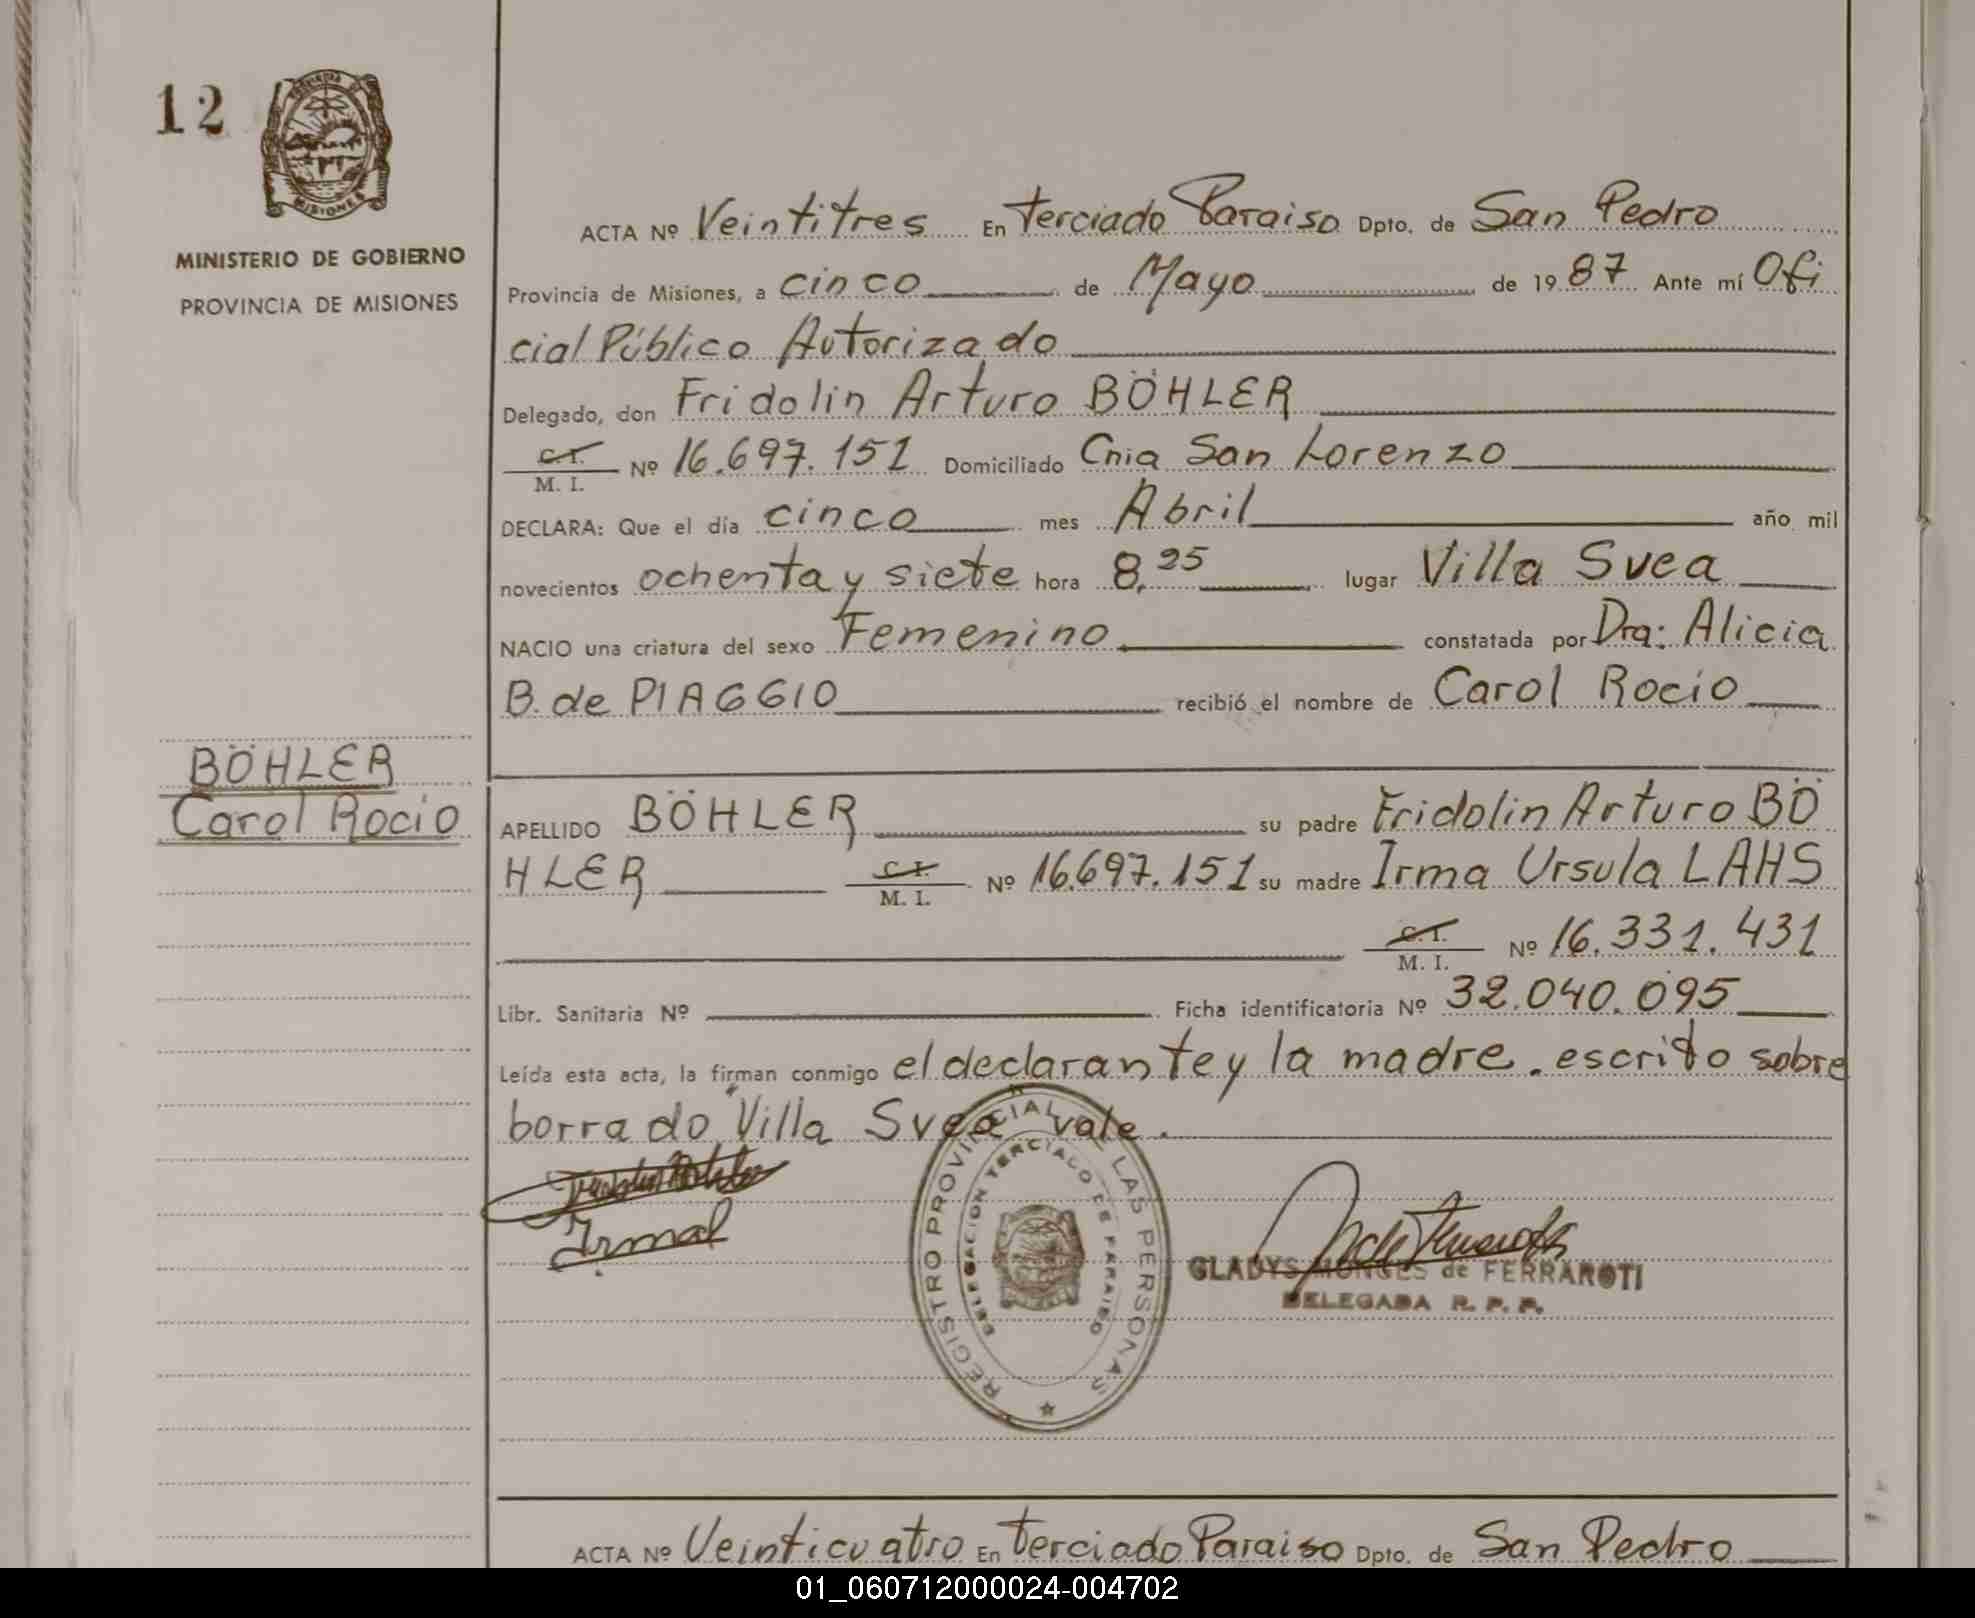 12
MISIONES
MINISTERIO DE GOBIERNO
PROVINCIA DE MISIONES
ACTA Nº Veintitres En Terciado Paraiso Dpto. de San Pedro
Provincia de Misiones, a cinco de Mayo de 1987 Ante mí Ofi
cial Público Autorizado
Delegado, don Fridolin Arturo BÖHLER
C. I.
M. I. Nº 16.697.151 Domiciliado Cnia San Lorenzo
DECLARA: Que el día cinco mes Abril año mil
novecientos ochenta y siete hora 8,25 lugar Villa Svea
NACIO una criatura del sexo Femenino constatada por Dra: Alicia
B. de PIAGGIO recibió el nombre de Carol Rocio
BÖHLER
Carol Rocio
APELLIDO BÖHLER su padre Fridolin Arturo BÖ
HLER C. I.
M. I. Nº 16.697.151 su madre Irma Ursula LAHS
C. I.
M. I. Nº 16.331.431
Libr. Sanitaria Nº Ficha identificatoria Nº 32.040.095
Leída esta acta, la firman conmigo el declarante y la madre. escrito sobre
borrado "Villa Svea" vale.
Irmal
REGISTRO PROVINCIAL DE LAS PERSONAS
DELEGACION TERCIADO DE PARAISO
GLADYS MONGES de FERRAROTI
DELEGADA R. P. P.
ACTA Nº Veinticuatro En Terciado Paraiso Dpto. de San Pedro
01_060712000024-004702